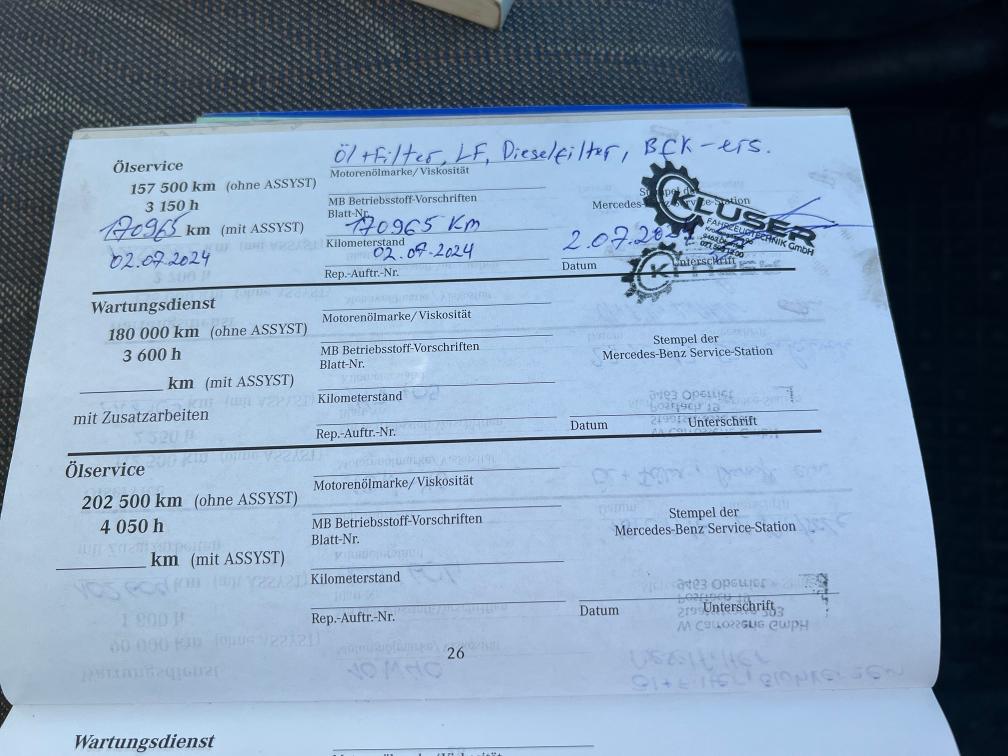 Öl+Filter, LF, Dieselfilter, BFK-ers.
Ölservice
157 500 km (ohne ASSYST)
3 150 h
170965 km (mit ASSYST)
02.07.2024
Motorenölmarke/Viskosität
MB Betriebsstoff-Vorschriften
Blatt-Nr.
170965 Km
Kilometerstand
02.07.2024
Rep.-Auftr.-Nr.
Stempel der
Mercedes-Benz Service-Station
KLUSER
FAHRZEUGTECHNIK GmbH
2.07.2024
Datum
Unterschrift
Wartungsdienst
180 000 km (ohne ASSYST)
3 600 h
km (mit ASSYST)
mit Zusatzarbeiten
Motorenölmarke/Viskosität
MB Betriebsstoff-Vorschriften
Blatt-Nr.
Kilometerstand
Rep.-Auftr.-Nr.
Stempel der
Mercedes-Benz Service-Station
Datum
Unterschrift
Ölservice
202 500 km (ohne ASSYST)
4 050 h
km (mit ASSYST)
Motorenölmarke/Viskosität
MB Betriebsstoff-Vorschriften
Blatt-Nr.
Kilometerstand
Rep.-Auftr.-Nr.
Stempel der
Mercedes-Benz Service-Station
Datum
Unterschrift
26
Wartungsdienst